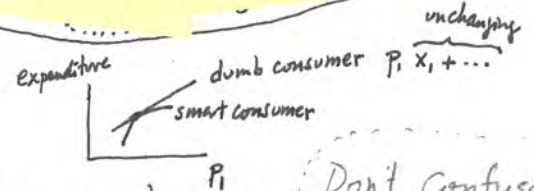 unchanging
expenditure
dumb consumer P₁ X₁ + ...
smart consumer
P₁
Don't Confuse